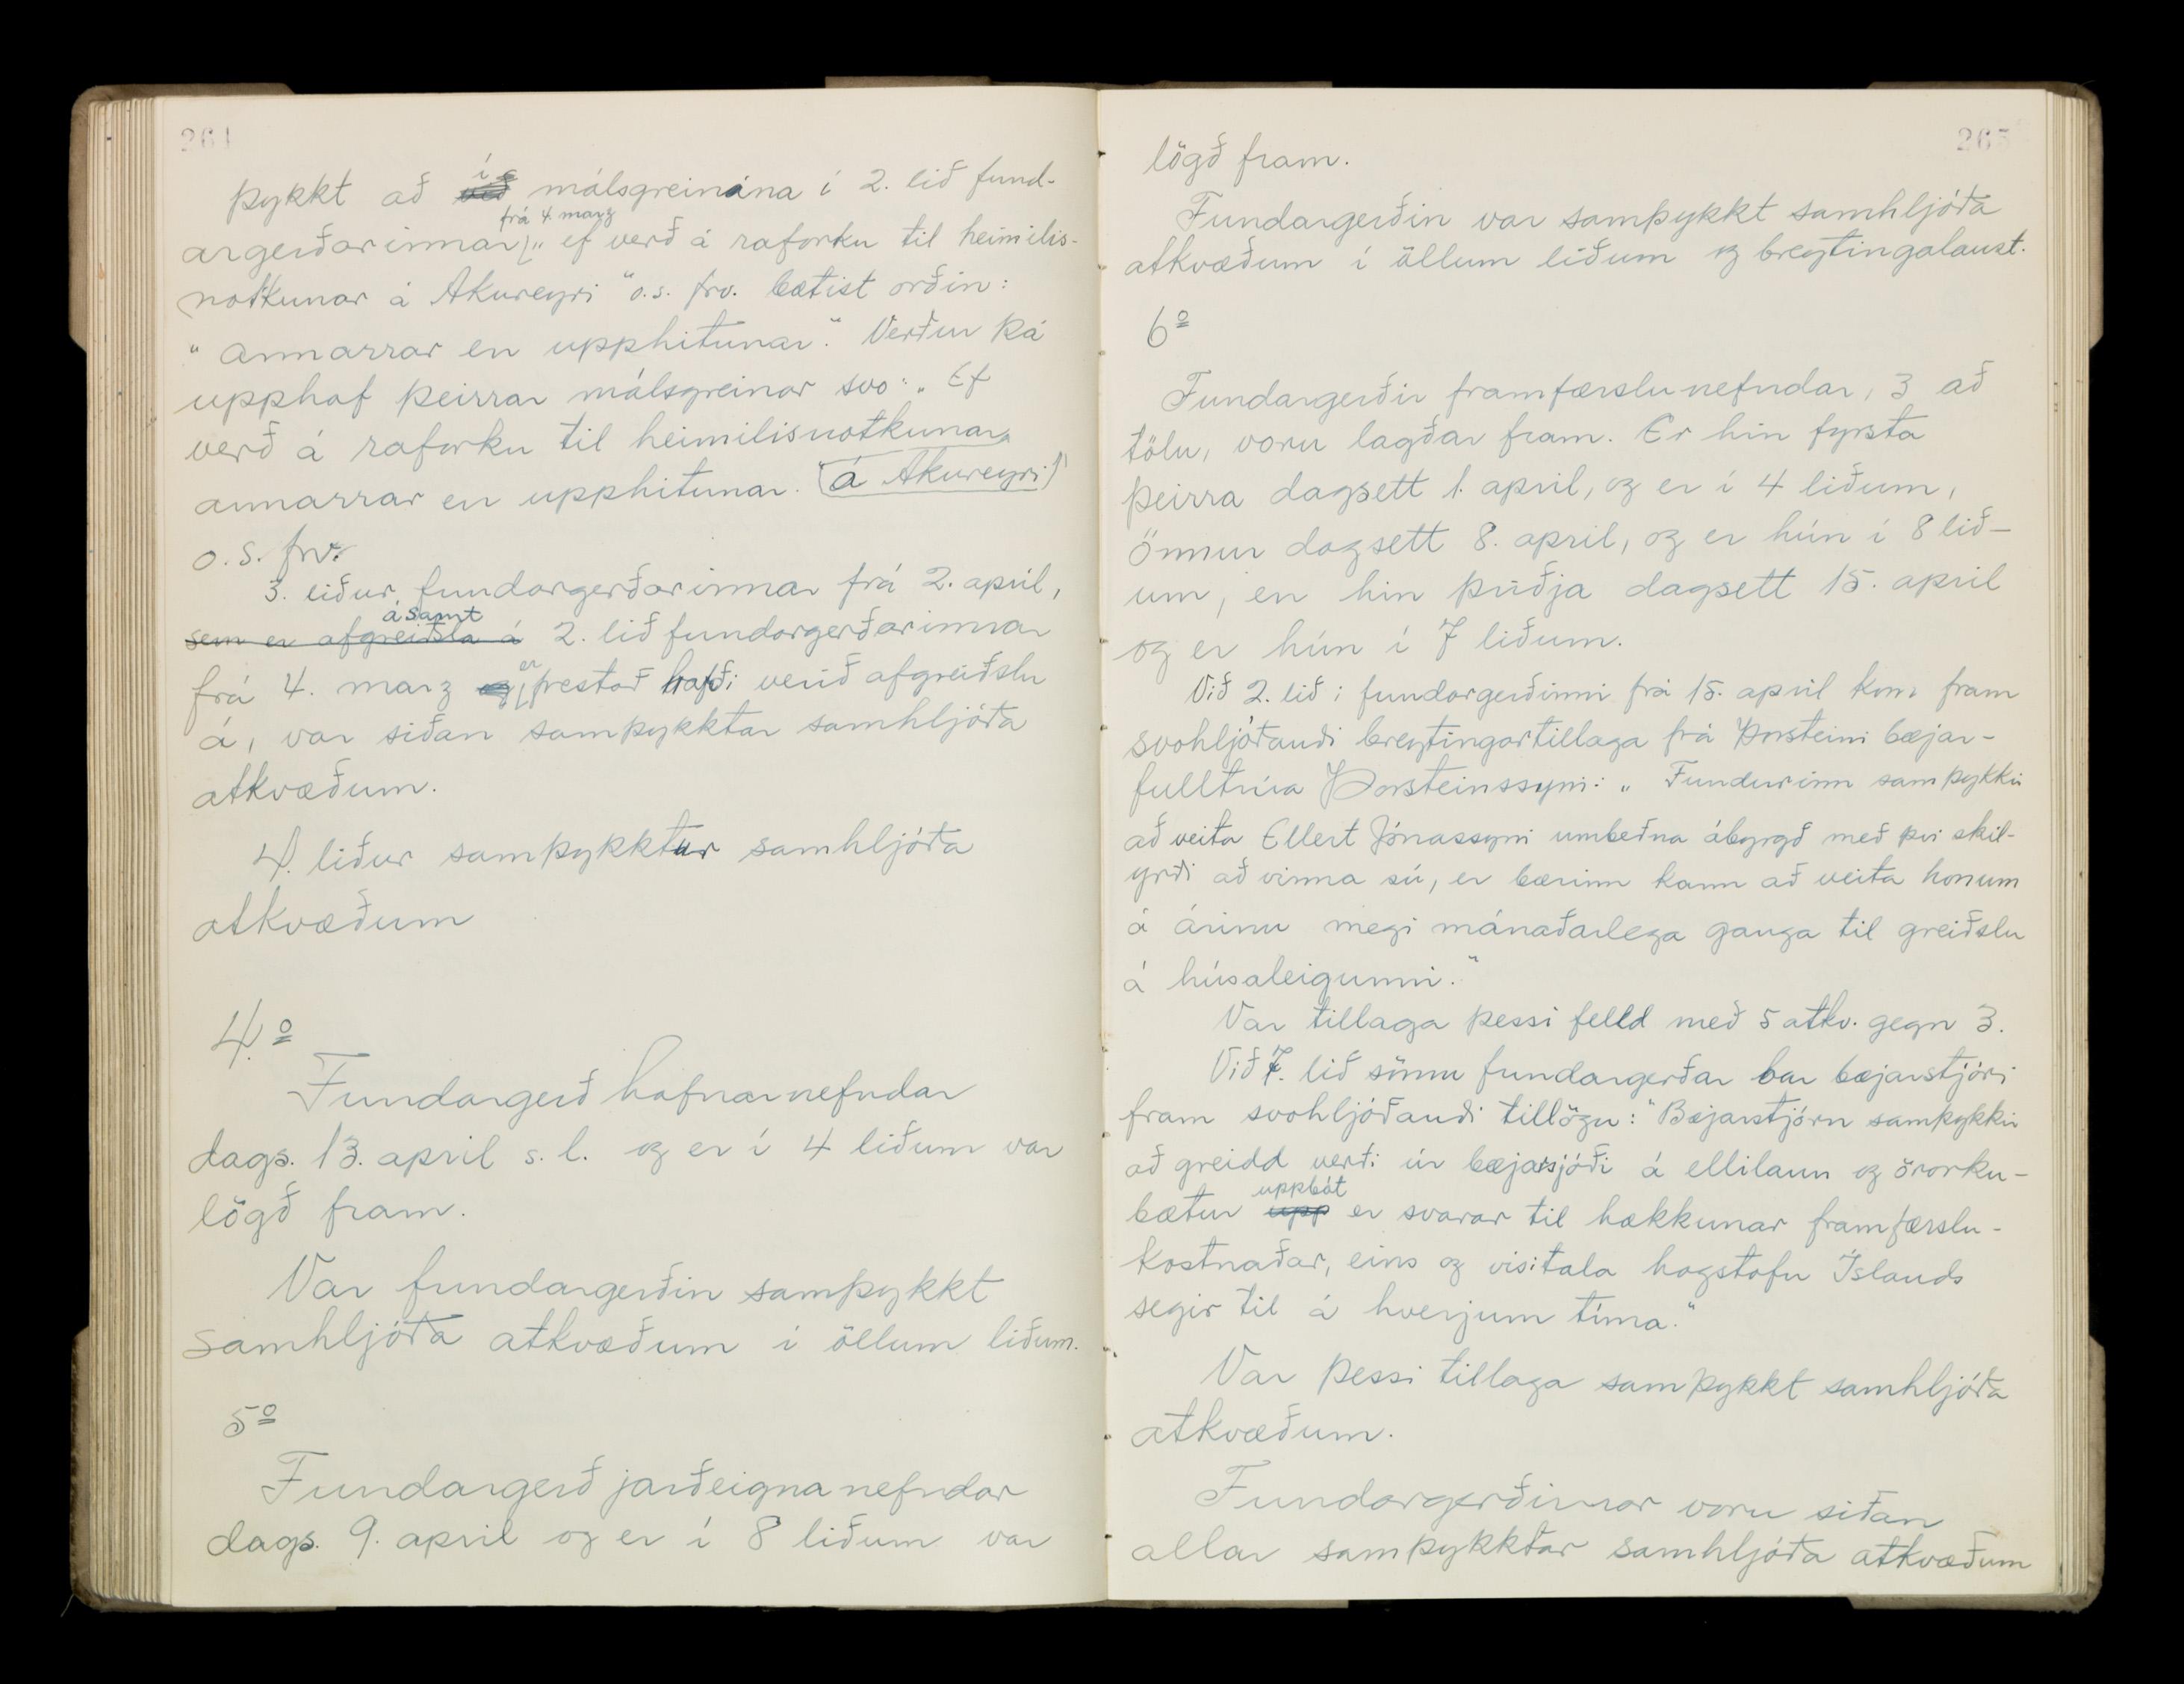 264
þykkt að í málsgreinina í 2. lið fund-
argerðarinnar frá 4 marz „ef verð á raforku til heimilis-
notkunar á Akureyri" o.s. frv. bætist orðin:
"annarrar en upphitunar." Verður þá
upphaf þeirrar málsgreinar svo: „Ef
verð á raforku til heimilisnotkunar,
annarrar en upphitunar. (á Akureyri)"
o. s. frv.
3. liður fundargerðarinnar frá 2. apríl,
sem er afgreiðsla á ásamt 2. lið fundargerðarinnar
frá 4. marz og er frestað hafði verið afgreiðslu
á, var síðan samþykktar samhljóða
atkvæðum.
4. liður samþykktur samhljóða
atkvæðum
4.º
Fundargerð hafnarnefndar
dags. 13. april s. l. og er í 4 liðum var
lögð fram.
Var fundargerðin samþykkt
samhljóða atkvæðum í öllum liðum.
5º
Fundargerð jarðeignanefndar
dags. 9. april og er í 8 liðum var
265
lögð fram.
Fundargerðin var samþykkt samhljóða
atkvæðum í öllum liðum og breytingalaust.
6º
Fundargerðir framfærslunefndar, 3 að
tölu, voru lagðar fram. Er hin fyrsta
þeirra dagsett 1. apríl, og er í 4 liðum,
önnur dagsett 8. apríl, og er hún í 8 lið-
um, en hin þriðja dagsett 15. apríl
og er hún í 7 liðum.
Við 2. lið í fundargerðinni frá 15. apríl kom fram
svohljóðandi breytingartillaga frá Þorsteini bæjar-
fulltrúa Þorsteinssyni: „Fundurinn samþykkir
að veita Ellert Jónassyni umbeðna ábyrgð með því skil-
yrði að vinna sú, er bærinn kann að veita honum
á árinu megi mánaðarlega ganga til greiðslu
á húsaleigunni."
Var tillaga þessi felld með 5 atkv. gegn 3.
Við 7. lið sömu fundargerðar bar bæjarstjóri
fram svohljóðandi tillögu: "Bæjarstjórn samþykkir
að greidd verði úr bæjarsjóði á ellilaun og örorku-
bætur upp uppbót er svarar til hækkunar framfærslu-
kostnaðar, eins og visitala hagstofu Íslands
segir til á hverjum tíma."
Var þessi tillaga samþykkt samhljóða
atkvæðum.
Fundargerðirnar voru síðan
allar samþykktar samhljóða atkvæðum